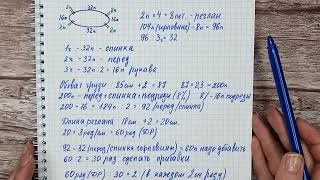 32п
2п 2п
16п 16п
2п 2п
32п
2п × 4 = 8 пет. - реглан
104п (горловина) - 8п = 96п
96 : 3 = 32
1ч - 32п - спинка
2ч - 32п - перед
3ч - 32п : 2 = 16п рукава
Обхват груди 85см + 2 = 87 87 × 2,3 = 200п
200п - перед + спинка + подрезы (8%) 8% = 16п подрезы
200 - 16 = 184п : 2 = 92 (перед/спинка)
Длина реглана 18см + 2 = 20см.
20 × 3 ряд/см = 60 ряд
92 - 32 (перед/спинка горловины) = 60п надо добавить
60 : 2 = 30 раз сделать прибавки
60 ряд : 30 = 2 (в каждом 2ом ряду)